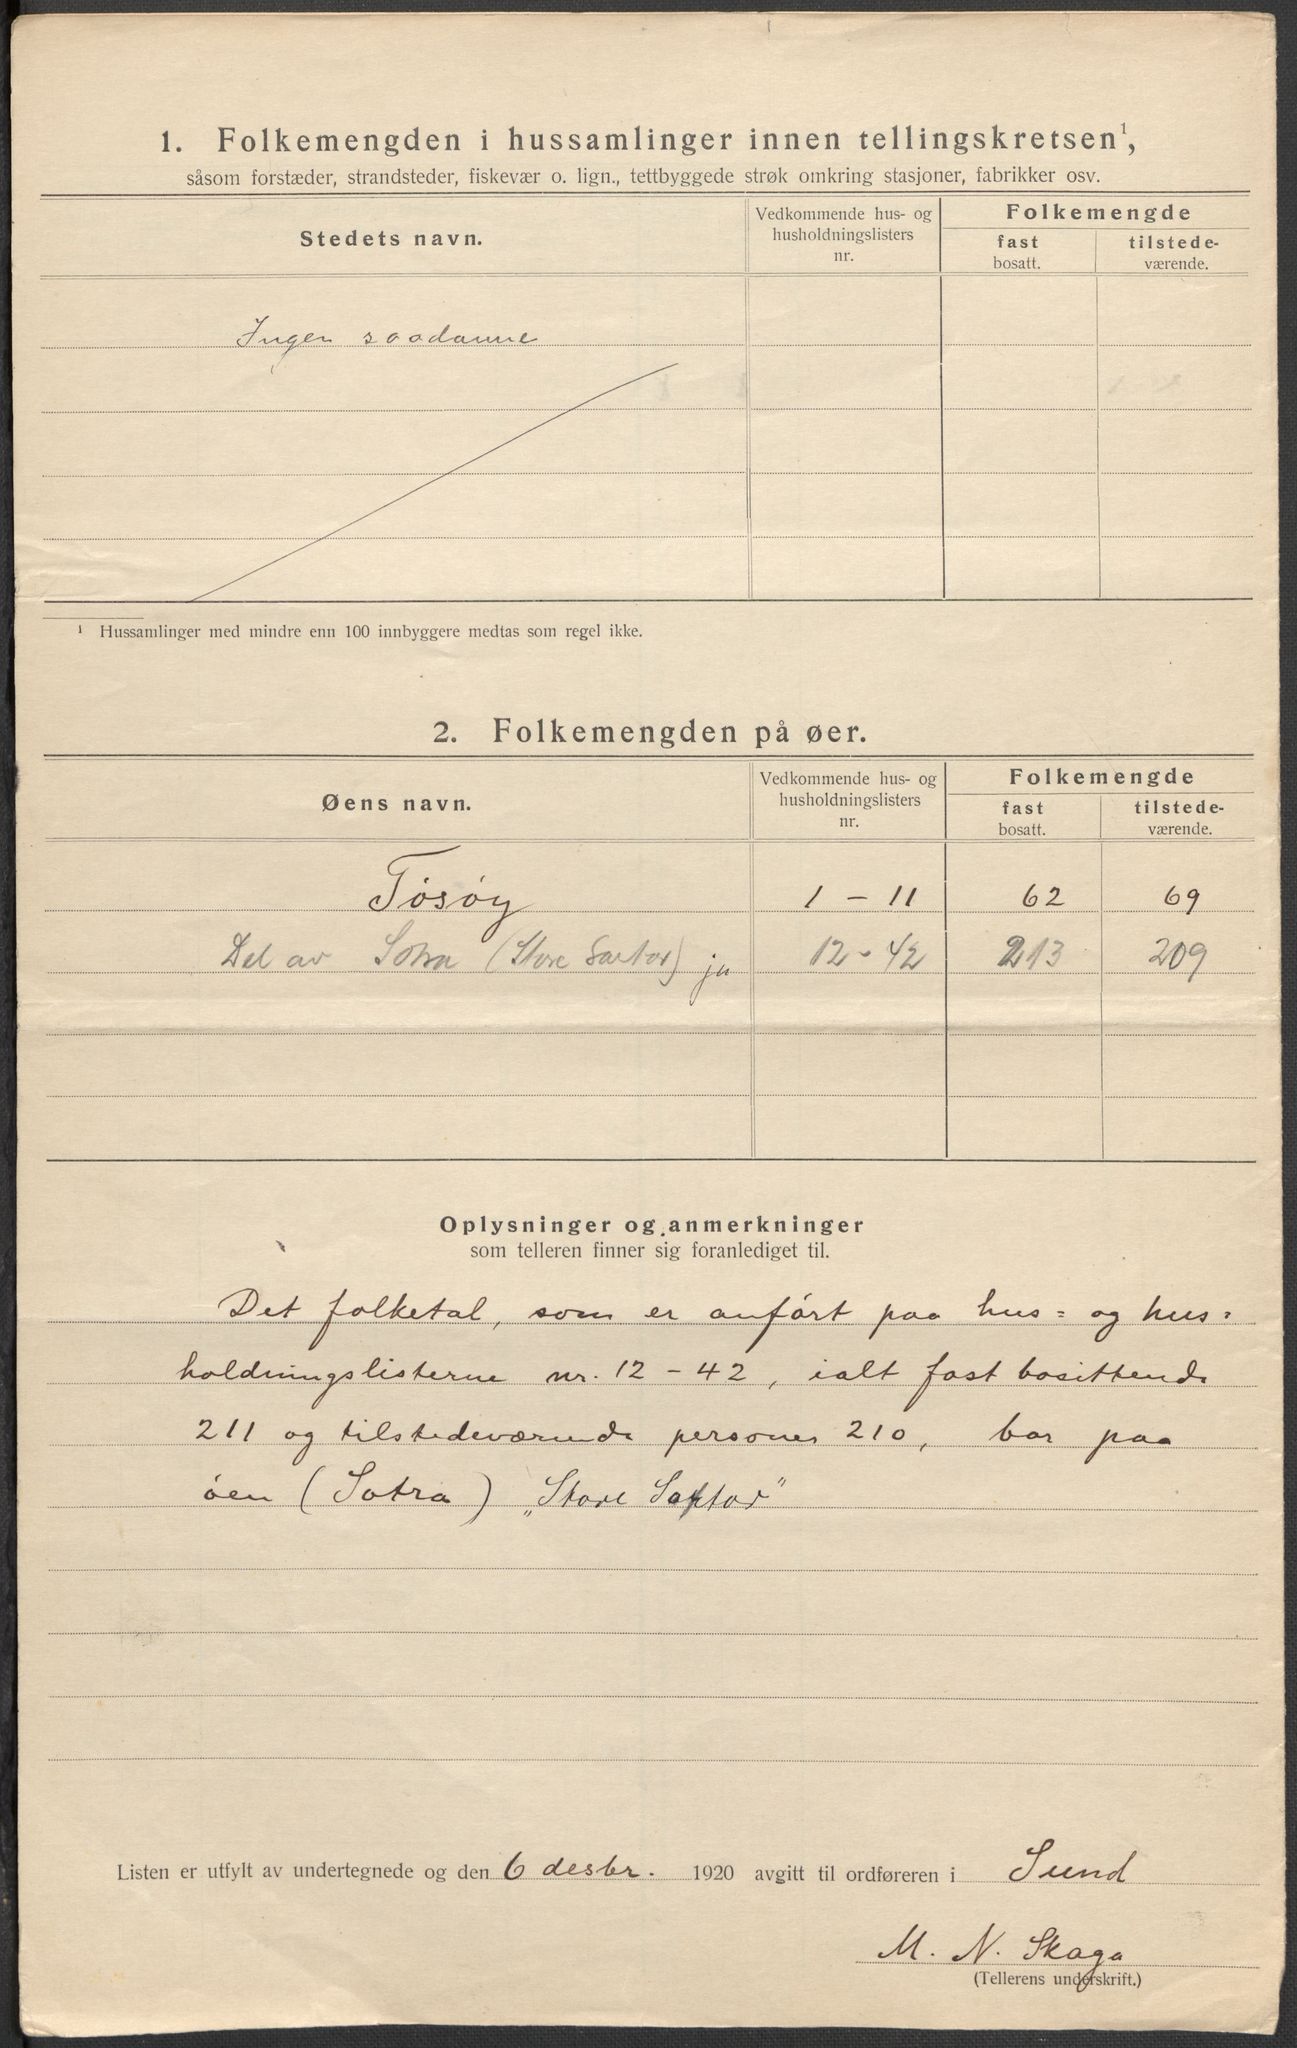 1. Folkemengden i hussamlinger innen tellingskretsen¹,
såsom forstæder, strandsteder, fiskevær o. lign., tettbyggede strøk omkring stasjoner, fabrikker osv.
Stedets navn.
Vedkommende hus- og
husholdningslisters
nr.
Folkemengde
fast
bosatt.
tilstede-
værende.
Ingen saadanne
¹ Hussamlinger med mindre enn 100 innbyggere medtas som regel ikke.
2. Folkemengden på øer.
Øens navn.
Vedkommende hus- og
husholdningslisters
nr.
Folkemengde
fast
bosatt.
tilstede-
værende.
Tösöy 1 - 11 62 69
Del av Sotra (Store Sartor) ja 12 - 42 213 209
Oplysninger og anmerkninger
som telleren finner sig foranlediget til.
Det folketal, som er anfört paa hus= og hus=
holdningslisterne nr. 12 - 42, ialt fast bosittende
211 og tilstedeværende personer 210, bor paa
öen (Sotra) „Store Sartor"
Listen er utfylt av undertegnede og den 6 desbr. 1920 avgitt til ordføreren i Sund
M. N. Skaga
(Tellerens underskrift.)